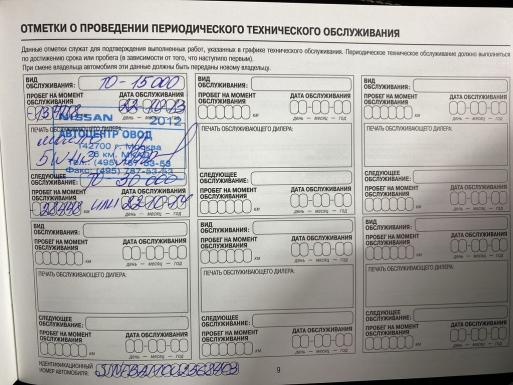 ОТМЕТКИ О ПРОВЕДЕНИИ ПЕРИОДИЧЕСКОГО ТЕХНИЧЕСКОГО ОБСЛУЖИВАНИЯ
Данные отметки служат для подтверждения выполненных работ, указанных в графике технического обслуживания. Периодическое техническое обслуживание должно выполняться
по достижению срока или пробега (в зависимости от того, что наступило первым).
При смене владельца автомобиля эти данные должны быть переданы новому владельцу.
ВИД ОБСЛУЖИВАНИЯ: ТО-15000
ПРОБЕГ НА МОМЕНТ ОБСЛУЖИВАНИЯ
ДАТА ОБСЛУЖИВАНИЯ
22 10 13
NISSAN 2012
ПЕЧАТЬ ОБСЛУЖИВАЮЩЕГО ДИЛЕРА:
АВТОЦЕНТР ОВОД
142700 г. Москва
26 км. МКАД
Тел: (495) 787-53-53
Факс: (495) 787-53-53
СЛЕДУЮЩЕЕ ОБСЛУЖИВАНИЕ: ТО-30000
ПРОБЕГ НА МОМЕНТ ОБСЛУЖИВАНИЯ
ДАТА ОБСЛУЖИВАНИЯ
или 22 10 14
день — месяц — год
ВИД ОБСЛУЖИВАНИЯ:
ПРОБЕГ НА МОМЕНТ ОБСЛУЖИВАНИЯ
ДАТА ОБСЛУЖИВАНИЯ
км
день — месяц — год
ПЕЧАТЬ ОБСЛУЖИВАЮЩЕГО ДИЛЕРА:
СЛЕДУЮЩЕЕ ОБСЛУЖИВАНИЕ:
ПРОБЕГ НА МОМЕНТ ОБСЛУЖИВАНИЯ
ДАТА ОБСЛУЖИВАНИЯ
км
день — месяц — год
ВИД ОБСЛУЖИВАНИЯ:
ПРОБЕГ НА МОМЕНТ ОБСЛУЖИВАНИЯ
ДАТА ОБСЛУЖИВАНИЯ
км
день — месяц — год
ПЕЧАТЬ ОБСЛУЖИВАЮЩЕГО ДИЛЕРА:
СЛЕДУЮЩЕЕ ОБСЛУЖИВАНИЕ:
ПРОБЕГ НА МОМЕНТ ОБСЛУЖИВАНИЯ
ДАТА ОБСЛУЖИВАНИЯ
км
день — месяц — год
ВИД ОБСЛУЖИВАНИЯ:
ПРОБЕГ НА МОМЕНТ ОБСЛУЖИВАНИЯ
ДАТА ОБСЛУЖИВАНИЯ
км
день — месяц — год
ПЕЧАТЬ ОБСЛУЖИВАЮЩЕГО ДИЛЕРА:
СЛЕДУЮЩЕЕ ОБСЛУЖИВАНИЕ:
ПРОБЕГ НА МОМЕНТ ОБСЛУЖИВАНИЯ
ДАТА ОБСЛУЖИВАНИЯ
км
день — месяц — год
ВИД ОБСЛУЖИВАНИЯ:
ПРОБЕГ НА МОМЕНТ ОБСЛУЖИВАНИЯ
ДАТА ОБСЛУЖИВАНИЯ
км
день — месяц — год
ПЕЧАТЬ ОБСЛУЖИВАЮЩЕГО ДИЛЕРА:
СЛЕДУЮЩЕЕ ОБСЛУЖИВАНИЕ:
ПРОБЕГ НА МОМЕНТ ОБСЛУЖИВАНИЯ
ДАТА ОБСЛУЖИВАНИЯ
км
день — месяц — год
ВИД ОБСЛУЖИВАНИЯ:
ПРОБЕГ НА МОМЕНТ ОБСЛУЖИВАНИЯ
ДАТА ОБСЛУЖИВАНИЯ
км
день — месяц — год
ПЕЧАТЬ ОБСЛУЖИВАЮЩЕГО ДИЛЕРА:
СЛЕДУЮЩЕЕ ОБСЛУЖИВАНИЕ:
ПРОБЕГ НА МОМЕНТ ОБСЛУЖИВАНИЯ
ДАТА ОБСЛУЖИВАНИЯ
км
день — месяц — год
ИДЕНТИФИКАЦИОННЫЙ НОМЕР АВТОМОБИЛЯ:
9